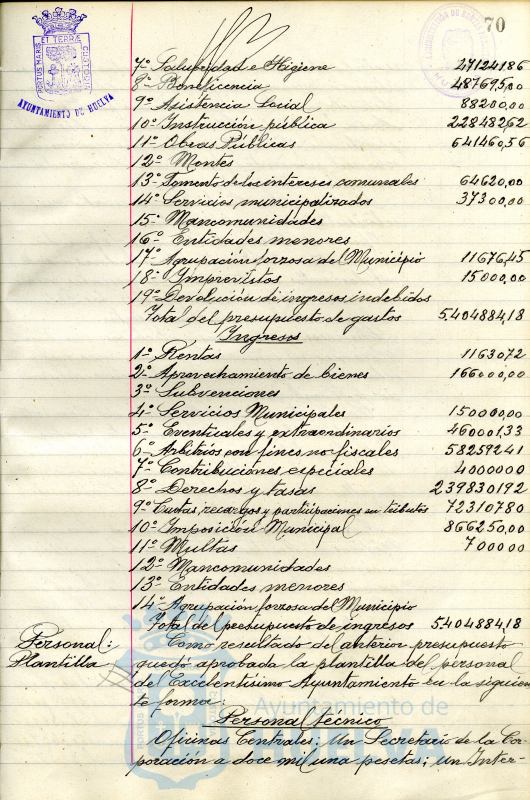 70
PORTUS MARIS ET TERRÆ CUSTODIA
AYUNTAMIENTO DE HUELVA
7º Salubridad e Higiene 271241,86
8º Beneficencia 487695,00
9º Asistencia Social 88200,00
10º Instrucción pública 228482,62
11º Obras Públicas 641460,56
12º Montes
13º Fomento de los intereses comunales 64620,00
14º Servicios municipalizados 37300,00
15º Mancomunidades
16º Entidades menores
17º Agrupación forzosa del Municipio 11676,45
18º Imprevistos 15000,00
19º Devolución de ingresos indebidos
Total del presupuesto de gastos 5.404884,18
Ingresos
1º Rentas 11630,72
2º Aprovechamiento de bienes 166000,00
3º Subvenciones
4º Servicios Municipales 150000,00
5º Eventuales y extraordinarios 460001,33
6º Arbitrios con fines no fiscales 582592,41
7º Contribuciones especiales 40000,00
8º Derechos y tasas 2398301,92
9º Cuotas, recargos y participaciones en tributos 723107,80
10º Imposición Municipal 866250,00
11º Multas 7000,00
12º Mancomunidades
13º Entidades menores
14º Agrupación forzosa del Municipio
Total del presupuesto de ingresos 5.404884,18
Personal:
Plantilla
Como resultado del anterior presupuesto
quedó aprobada la plantilla del personal
del Excelentísimo Ayuntamiento en la siguien
te forma:
Personal técnico
Oficinas Centrales: Un Secretario de la Cor-
poración a doce mil una pesetas; un Inter-
Ayuntamiento de
HUELVA